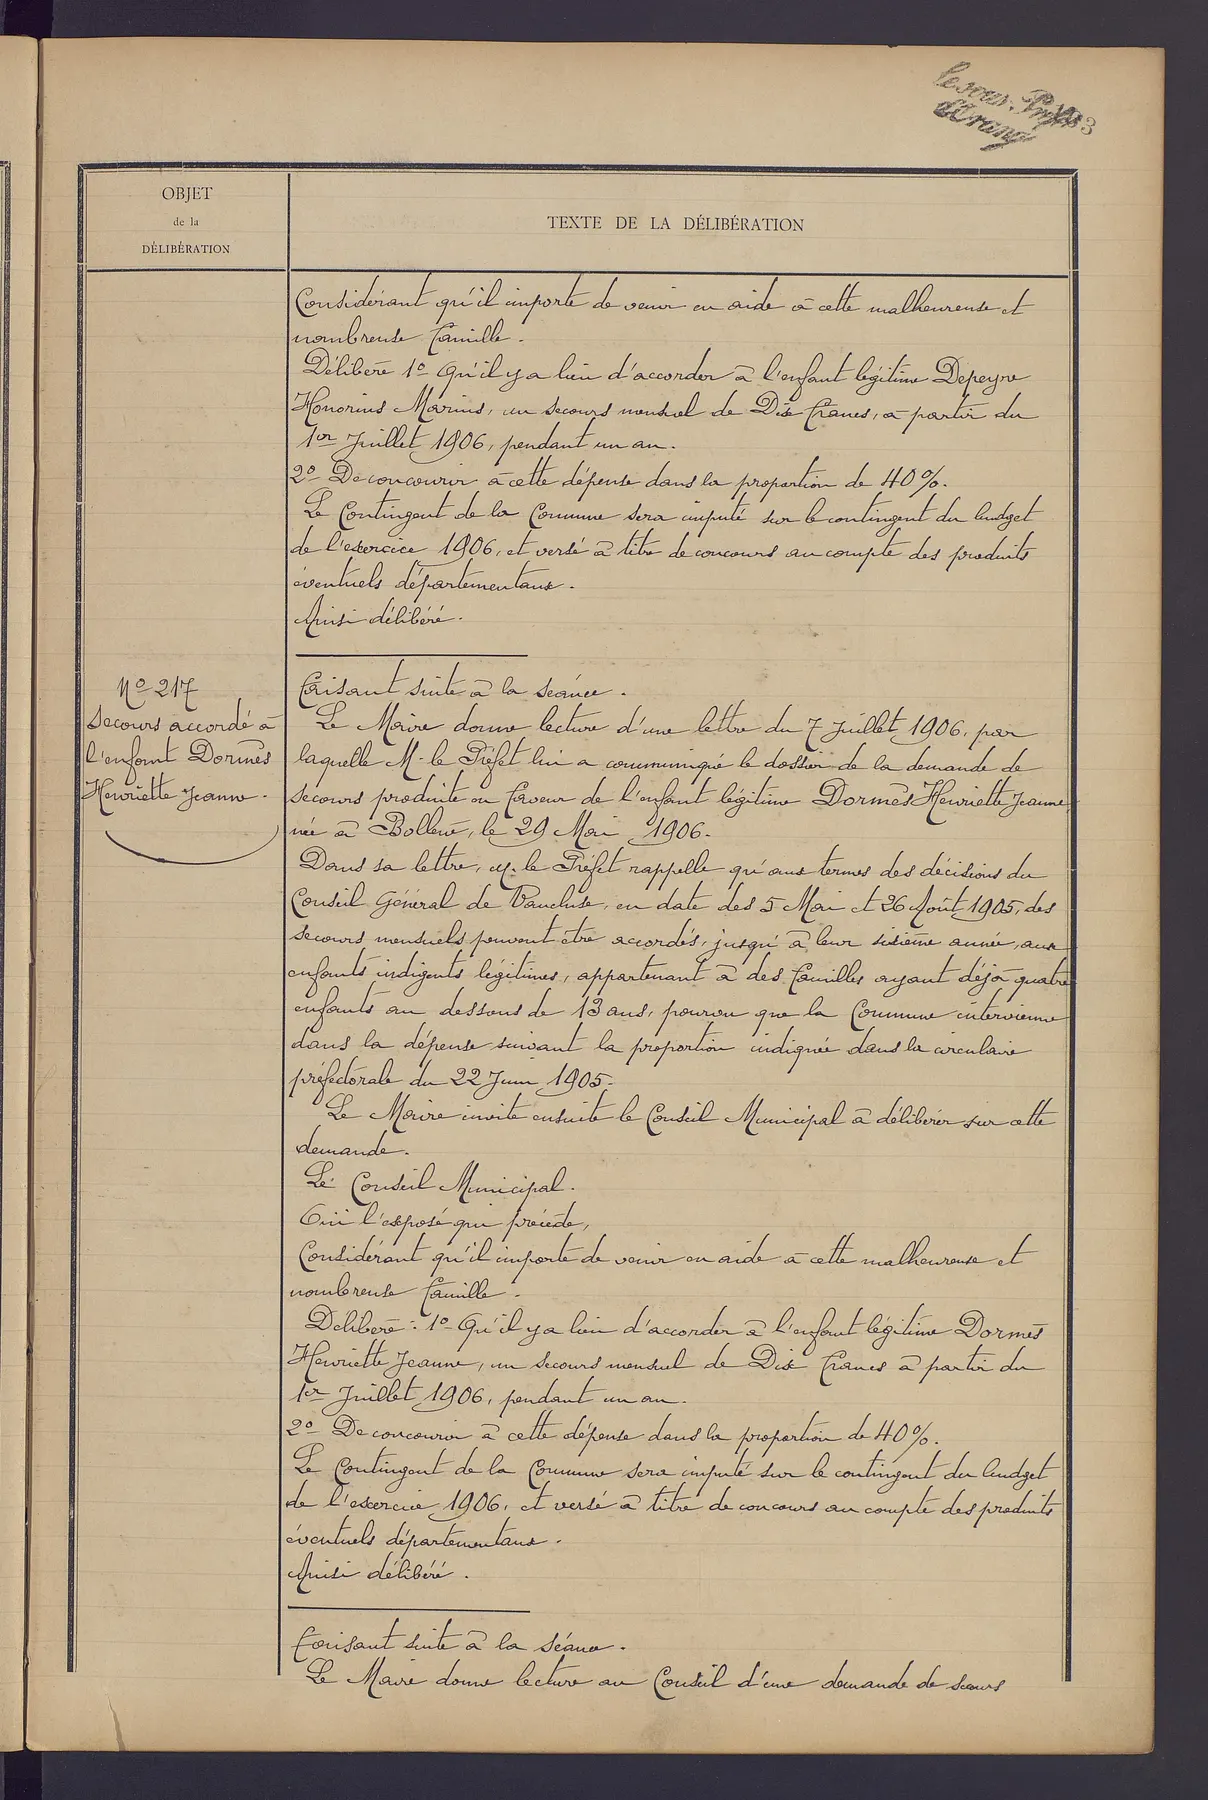 le sous-Préfet
d'Orange
OBJET
de la
DÉLIBÉRATION
TEXTE DE LA DÉLIBÉRATION
Considérant qu'il importe de venir en aide à cette malheureuse et
nombreuse famille.
Délibère 1º Qu'il y a lieu d'accorder à l'enfant légitime Depeyre
Honorius Marius, un secours mensuel de Dix francs, à partir du
1er Juillet 1906, pendant un an.
2º De concourir à cette dépense dans la proportion de 40%.
Le Contingent de la Commune sera imputé sur le contingent du budget
de l'exercice 1906, et versé à titre de concours au compte des produits
éventuels départementaux.
Ainsi délibéré.
Nº 217
Secours accordé à
l'enfant Dormès
Henriette Jeanne.
Faisant suite à la séance.
Le Maire donne lecture d'une lettre du 7 Juillet 1906, par
laquelle M. le Préfet lui a communiqué le dossier de la demande de
secours produite en faveur de l'enfant légitime Dormès Henriette Jeanne,
née à Bollène, le 29 Mai 1906.
Dans sa lettre, M. le Préfet rappelle qu'aux termes des décisions du
Conseil Général de Vaucluse, en date des 5 Mai et 26 Août 1905, des
secours mensuels peuvent être accordés, jusqu'à leur sixième année, aux
enfants indigents légitimes, appartenant à des familles ayant déjà quatre
enfants au dessous de 13 ans, pourvu que la Commune intervienne
dans la dépense suivant la proportion indiquée dans la circulaire
préfectorale du 22 Juin 1905.
Le Maire invite ensuite le Conseil Municipal à délibérer sur cette
demande.
Le Conseil Municipal.
Oui l'exposé qui précède,
Considérant qu'il importe de venir en aide à cette malheureuse et
nombreuse famille.
Délibère : 1º Qu'il y a lieu d'accorder à l'enfant légitime Dormès
Henriette Jeanne, un secours mensuel de Dix francs à partir du
1er Juillet 1906, pendant un an.
2º De concourir à cette dépense dans la proportion de 40%.
Le Contingent de la Commune sera imputé sur le contingent du budget
de l'exercice 1906, et versé à titre de concours au compte des produits
éventuels départementaux.
Ainsi délibéré.
Faisant suite à la séance.
Le Maire donne lecture au Conseil d'une demande de secours